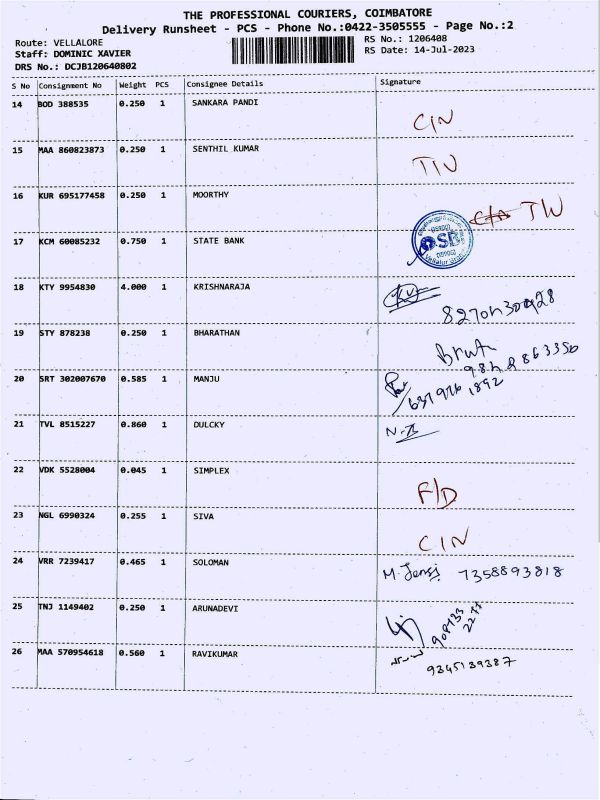 THE PROFESSIONAL COURIERS, COIMBATORE
Delivery Runsheet - PCS - Phone No.:0422-3505555 - Page No.:2
Route: VELLALORE
RS No.: 1206408
Staff: DOMINIC XAVIER
RS Date: 14-Jul-2023
DRS No.: DCJB120640802
S No Consignment No Weight PCS Consignee Details Signature
14 BOD 388535 0.250 1 SANKARA PANDI
CIN
15 MAA 860823873 0.250 1 SENTHIL KUMAR
TIN
16 KUR 695177458 0.250 1 MOORTHY
17 KCM 60085232 0.750 1 STATE BANK
18 KTY 9954830 4.000 1 KRISHNARAJA
19 STY 878238 0.250 1 BHARATHAN
20 SRT 302007670 0.585 1 MANJU
21 TVL 8515227 0.860 1 DULCKY
22 VDK 5528004 0.045 1 SIMPLEX
F/D
23 NGL 6990324 0.255 1 SIVA
CIN
24 VRR 7239417 0.465 1 SOLOMAN
M. Jensi 7358893818
25 TNJ 1149402 0.250 1 ARUNADEVI
26 MAA 570954618 0.560 1 RAVIKUMAR
9345139387